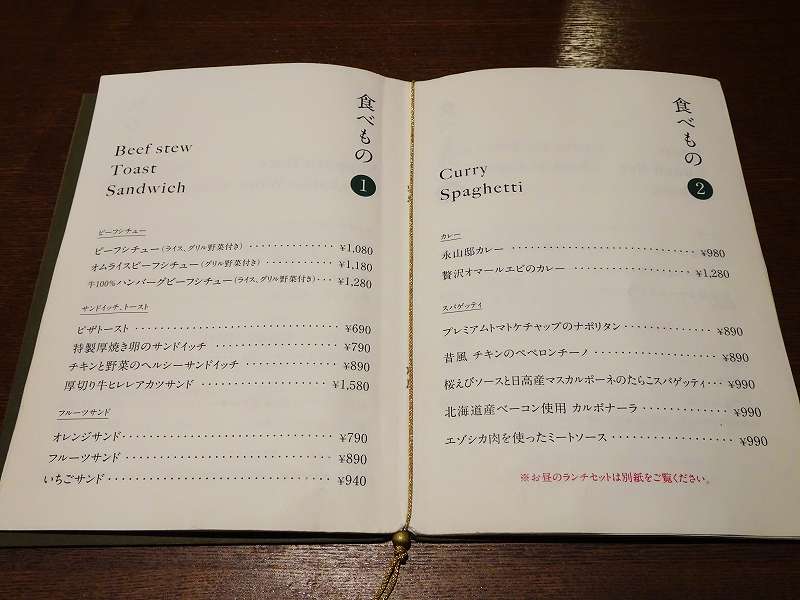 食べもの
1
Beef stew
Toast
Sandwich
ビーフシチュー
ビーフシチュー(ライス、グリル野菜付き) ¥1,080
オムライスビーフシチュー(グリル野菜付き) ¥1,180
牛100%ハンバーグビーフシチュー(ライス、グリル野菜付き) ¥1,280
サンドイッチ、トースト
ピザトースト ¥690
特製厚焼き卵のサンドイッチ ¥790
チキンと野菜のヘルシーサンドイッチ ¥890
厚切り牛ヒレレアカツサンド ¥1,580
フルーツサンド
オレンジサンド ¥790
フルーツサンド ¥890
いちごサンド ¥940
食べもの
2
Curry
Spaghetti
カレー
永山邸カレー ¥980
贅沢オマールエビのカレー ¥1,280
スパゲッティ
プレミアムトマトケチャップのナポリタン ¥890
昔風 チキンのペペロンチーノ ¥890
桜えびソースと日高産マスカルポーネのたらこスパゲッティ ¥990
北海道産ベーコン使用 カルボナーラ ¥990
エゾシカ肉を使ったミートソース ¥990
※お昼のランチセットは別紙をご覧ください。